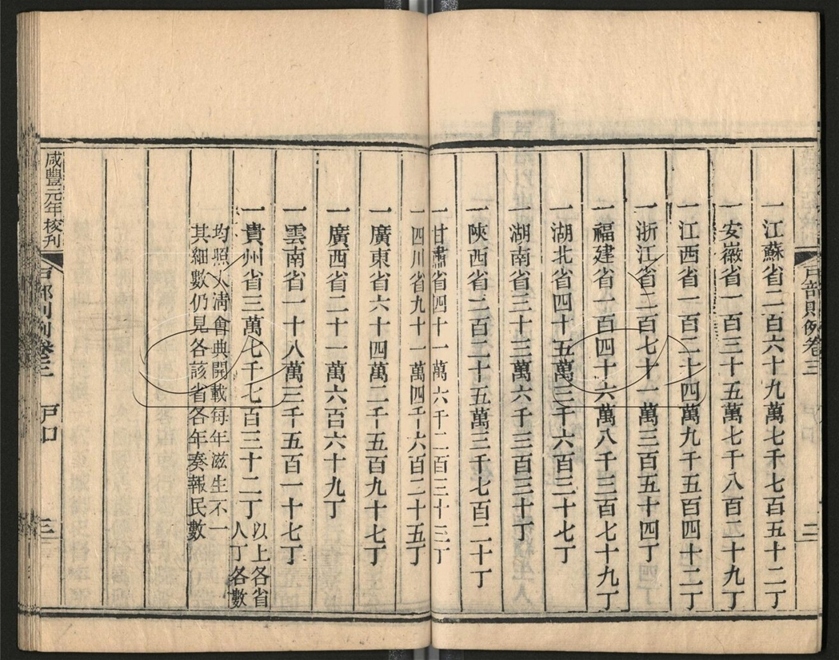 戸部則例卷三 戸口 三
一江蘇省二百六十九萬七千七百五十二丁
一安徽省一百三十五萬七千八百二十九丁
一江西省一百二十四萬九千五百四十二丁
一浙江省二百七十一萬三百五十四丁
一福建省一百四十六萬八千三百七十九丁
一湖北省四十五萬三千六百三十七丁
一湖南省三十三萬六千三百三十丁
一陝西省二百二十五萬三千七百二十丁
一甘肅省四十一萬六千二百三十三丁
一四川省九十一萬四千六百二十五丁
一廣東省六十四萬二千五百九十七丁
一廣西省二十一萬六百六十九丁
一雲南省一十八萬三千五百一十七丁
一貴州省三萬七千七百三十二丁 以上各省
人丁各數
均照大淸會典開載每年滋生不一
其細數仍見各該省各年奏報民數
咸豐元年校刊 戸部則例卷三 戸口 三